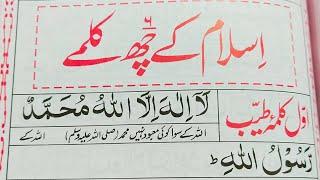 اِسلام کے چھ ۶ کلمے
اوّل کلمۂ طیّب لَآ اِلٰهَ اِلَّا اللّٰهُ مُحَمَّدٌ
اللہ کے سوا کوئی معبود نہیں محمد (صلی اللہ علیہ وسلم) اللہ کے
رَّسُوْلُ اللّٰهِ ط